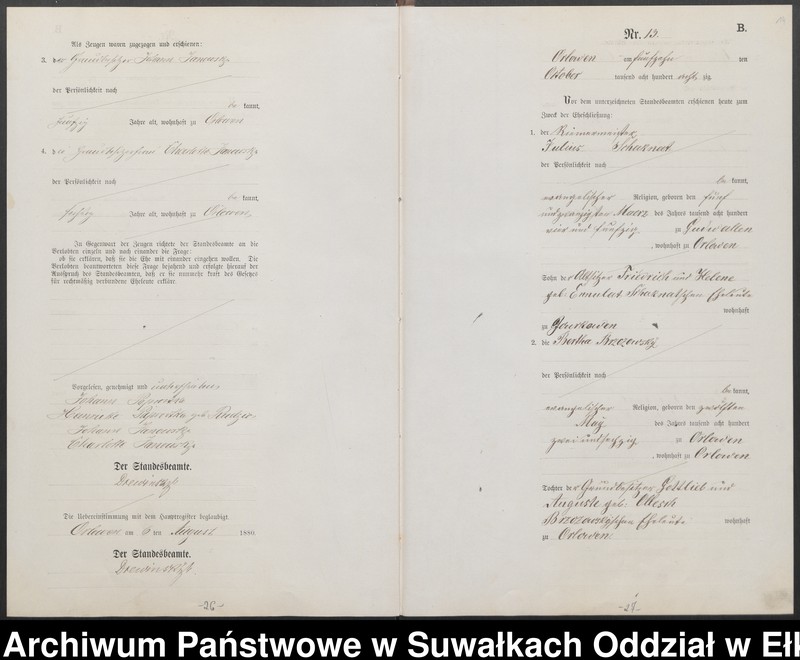 Als Zeugen waren zugezogen und erschienen:
3. der Grundbesitzer Johann
der Persönlichkeit nach
be kannt,
fünfzig Jahre alt, wohnhaft zu Orlowen
4. die Charlotte
der Persönlichkeit nach
be kannt,
Jahre alt, wohnhaft zu Orlowen,
In Gegenwart der Zeugen richtete der Standesbeamte an die
Verlobten einzeln und nach einander die Frage:
ob sie erklären, daß sie die Ehe mit einander eingehen wollen. Die
Verlobten beantworteten diese Frage bejahend und erfolgte hierauf der
Ausspruch des Standesbeamten, daß er sie nunmehr kraft des Gesetzes
für rechtmäßig verbundene Eheleute erkläre.
Vorgelesen, genehmigt und unterschrieben
Johann
geb.
Johann
Charlotte
Der Standesbeamte.
Die Uebereinstimmung mit dem Hauptregister beglaubigt
Orlowen am 6 ten August 1880.
Der Standesbeamte.
-26-
Nr. 13.
B.
Orlowen am fünfzehn ten
Oktober tausend acht hundert acht zig.
Vor dem unterzeichneten Standesbeamten erschienen heute zum
Zweck der Eheschließung:
1. der Riemermeister
Julius
der Persönlichkeit nach
be kannt,
evangelischer Religion, geboren den fünf
undzwanzigsten Maerz des Jahres tausend acht hundert
vier und fünfzig zu
, wohnhaft zu Orlowen
Sohn der Altsitzer Friedrich und Helene
geb. Eheleute
wohnhaft
zu
2. die Bertha Brzozowsky
der Persönlichkeit nach
be kannt,
evangelischer Religion, geboren den zwölften
May des Jahres tausend acht hundert
zwei und sechzig zu Orlowen
, wohnhaft zu Orlowen
Tochter der Grundbesitzer Gottlieb und
Auguste geb.
Brzozowskyschen Eheleute wohnhaft
zu Orlowen.
-27-
Archiwum Państwowe w Suwałkach Oddział w Ełk